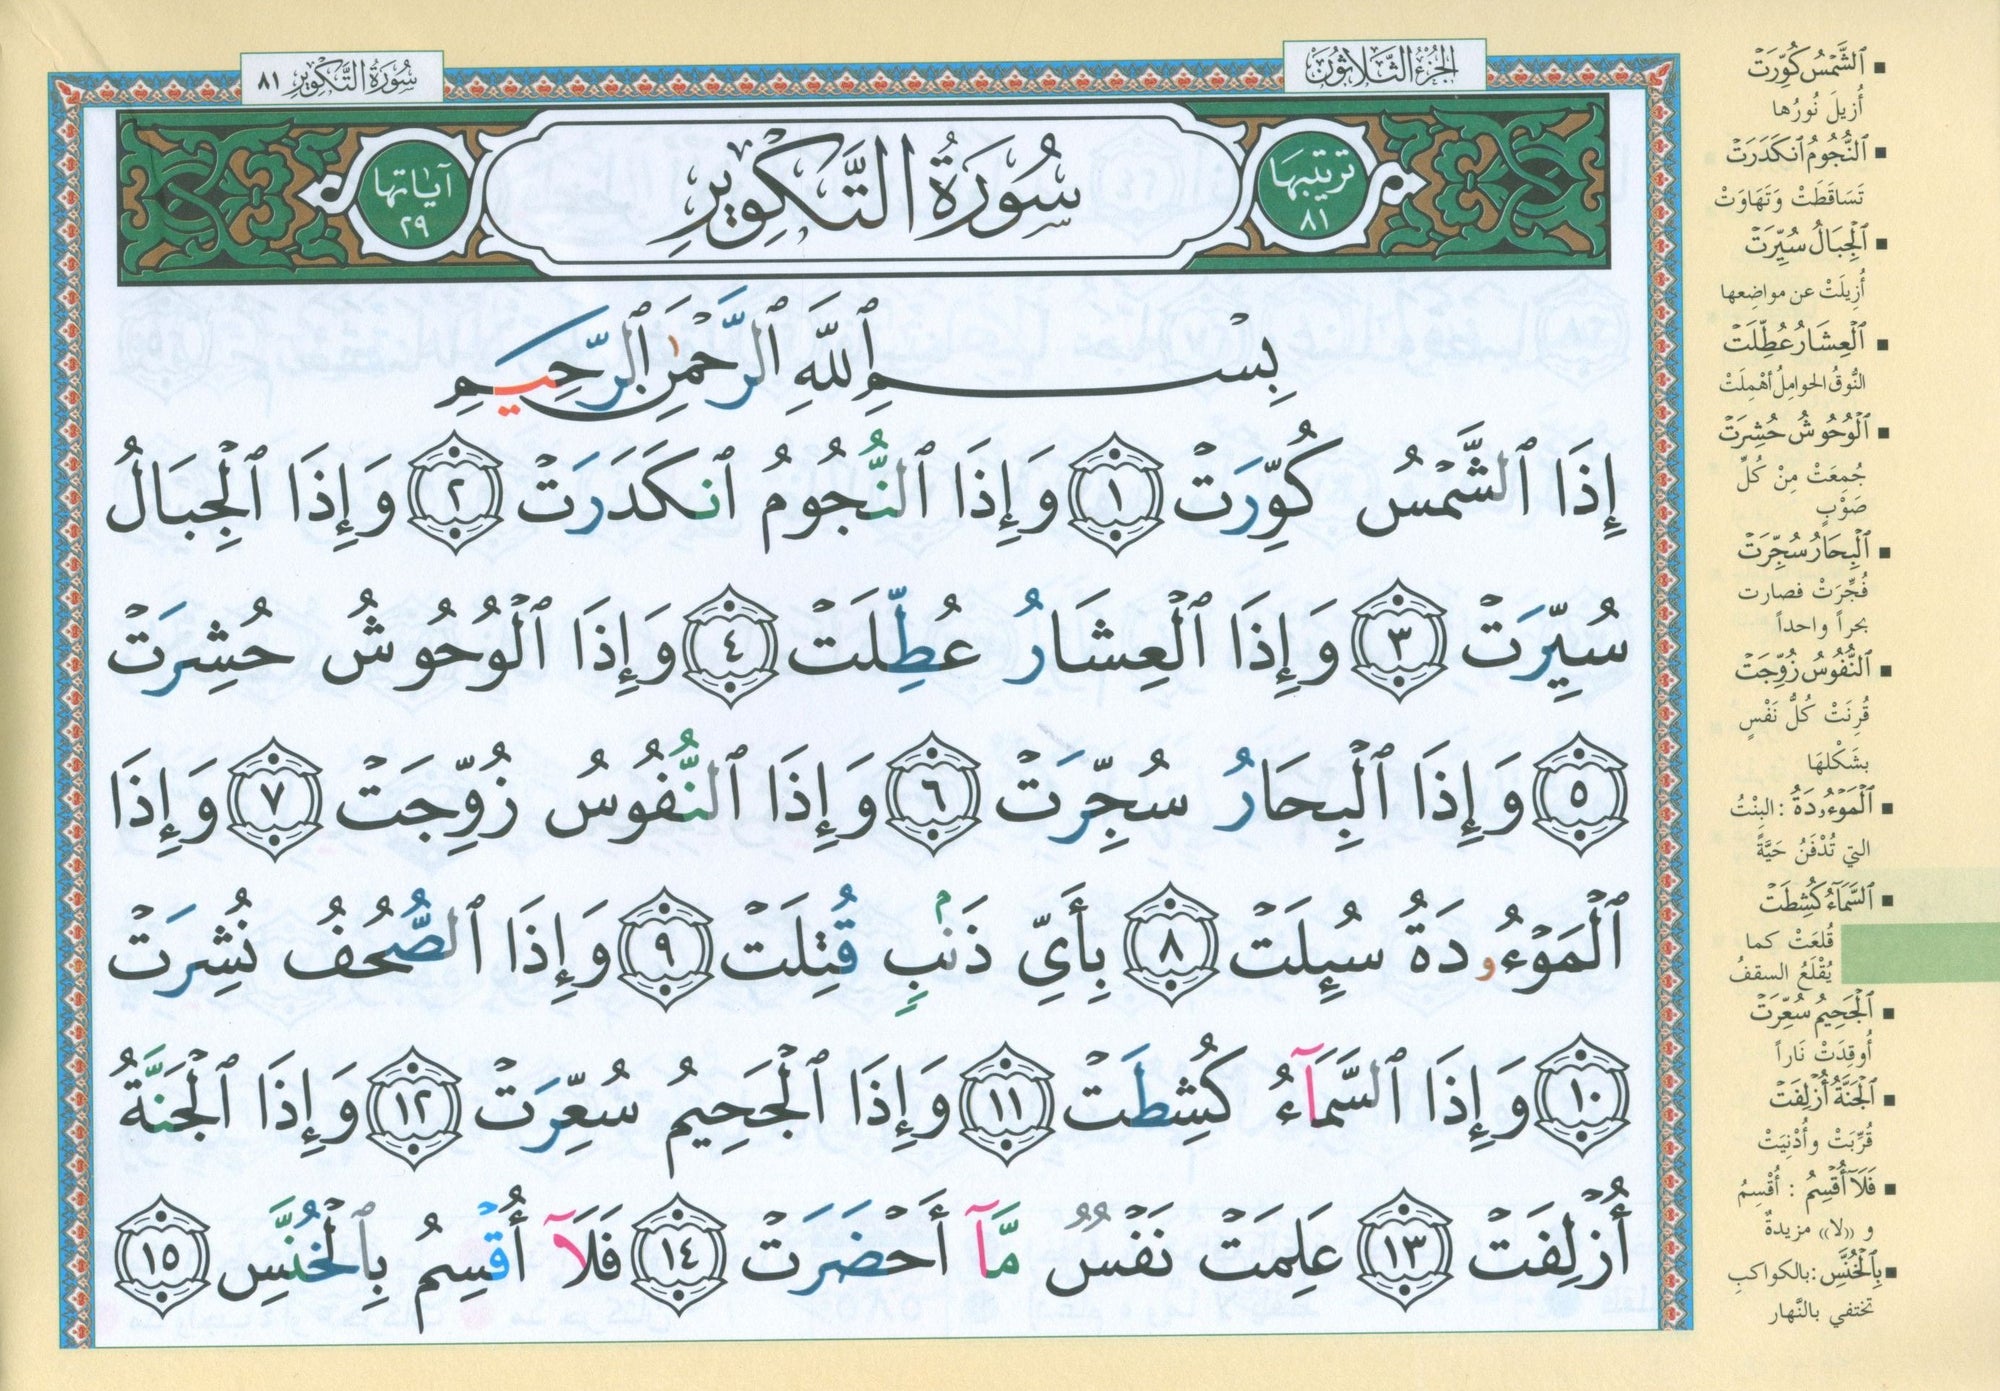 الجزء الثلاثون
سورة التكوير ٨١
ترتيبها
٨١
سُورَةُ التَّكْوِيرِ
آياتها
٢٩
بِسْمِ ٱللَّهِ ٱلرَّحْمَٰنِ ٱلرَّحِيمِ
إِذَا ٱلشَّمْسُ كُوِّرَتْ ١ وَإِذَا ٱلنُّجُومُ ٱنكَدَرَتْ ٢ وَإِذَا ٱلْجِبَالُ
سُيِّرَتْ ٣ وَإِذَا ٱلْعِشَارُ عُطِّلَتْ ٤ وَإِذَا ٱلْوُحُوشُ حُشِرَتْ
٥ وَإِذَا ٱلْبِحَارُ سُجِّرَتْ ٦ وَإِذَا ٱلنُّفُوسُ زُوِّجَتْ ٧ وَإِذَا
ٱلْمَوْءُۥدَةُ سُئِلَتْ ٨ بِأَىِّ ذَنۢبٍ قُتِلَتْ ٩ وَإِذَا ٱلصُّحُفُ نُشِرَتْ
١٠ وَإِذَا ٱلسَّمَآءُ كُشِطَتْ ١١ وَإِذَا ٱلْجَحِيمُ سُعِّرَتْ ١٢ وَإِذَا ٱلْجَنَّةُ
أُزْلِفَتْ ١٣ عَلِمَتْ نَفْسٌ مَّآ أَحْضَرَتْ ١٤ فَلَآ أُقْسِمُ بِٱلْخُنَّسِ ١٥
▪ ٱلشَّمْسُ كُوِّرَتْ
أُزِيلَ نُورُها
▪ ٱلنُّجُومُ ٱنكَدَرَتْ
تَسَاقَطَتْ وَتَهَاوَتْ
▪ ٱلْجِبَالُ سُيِّرَتْ
أُزِيلَتْ عن مواضِعها
▪ ٱلْعِشَارُ عُطِّلَتْ
النُّوقُ الحوامِلُ أُهْمِلَتْ
▪ ٱلْوُحُوشُ حُشِرَتْ
جُمعَتْ مِنْ كُلِّ
صَوْبٍ
▪ ٱلْبِحَارُ سُجِّرَتْ
فُجِّرَتْ فصارت
بحراً واحداً
▪ ٱلنُّفُوسُ زُوِّجَتْ
قُرِنَتْ كُلُّ نَفْسٍ
بشَكْلهَا
▪ ٱلْمَوْءُۥدَةُ : البِنْتُ
التي تُدْفَنُ حَيَّةً
▪ ٱلسَّمَآءُ كُشِطَتْ
قُلعَتْ كما
يُقْلَعُ السقفُ
▪ ٱلْجَحِيمُ سُعِّرَتْ
أُوقِدَتْ نَاراً
▪ ٱلْجَنَّةُ أُزْلِفَتْ
قُرِّبَتْ وأُدْنِيَتْ
▪ فَلَآ أُقْسِمُ : أُقْسِمُ
و «لا» مزيدةٌ
▪ بِٱلْخُنَّسِ : بالكواكبِ
تختفي بالنَّهار